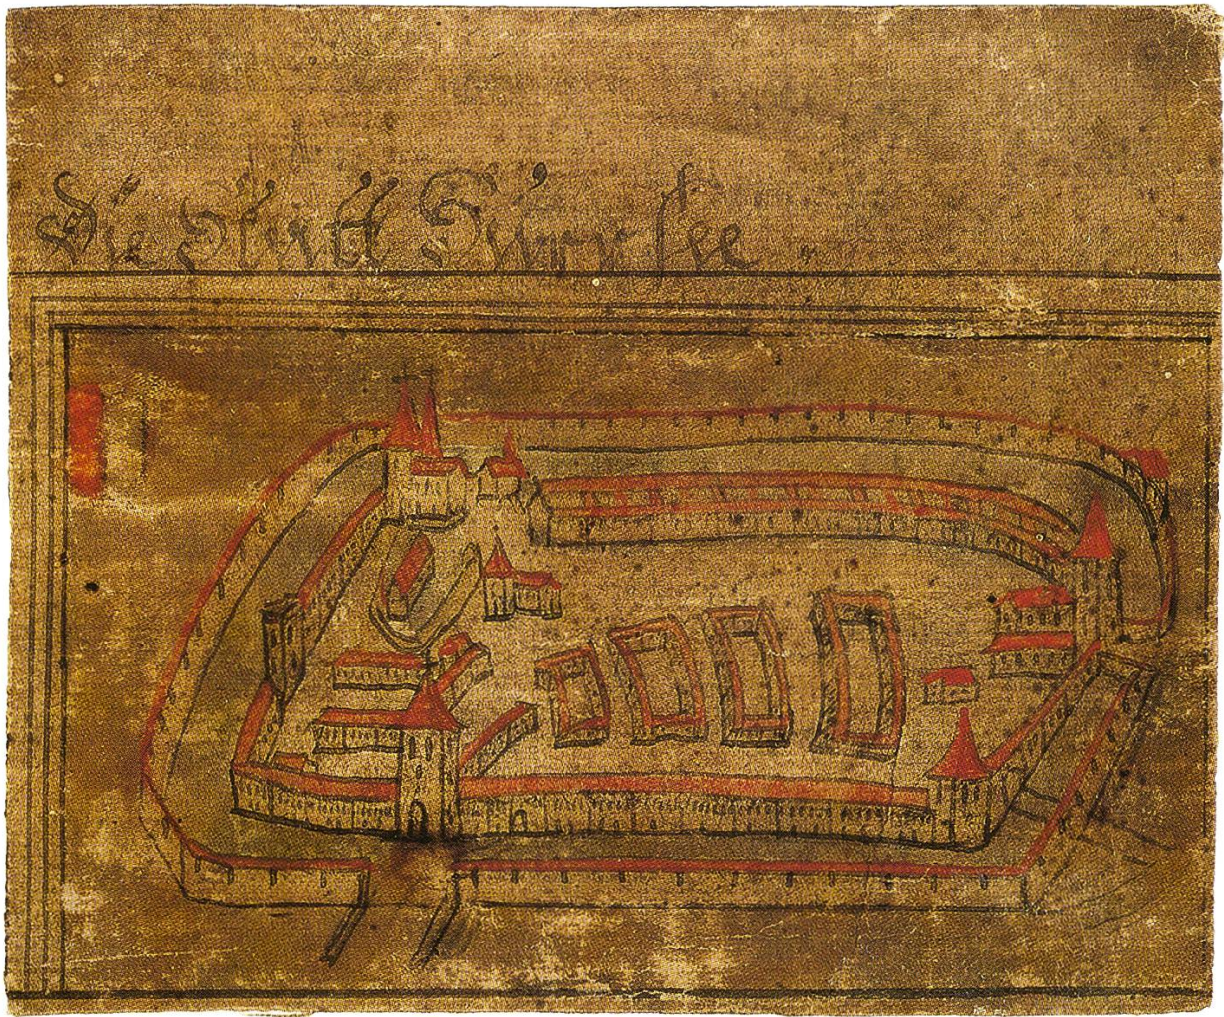 Die Statt Sursee